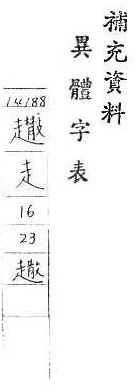 補充資料
異體字表
14188
走
16
23